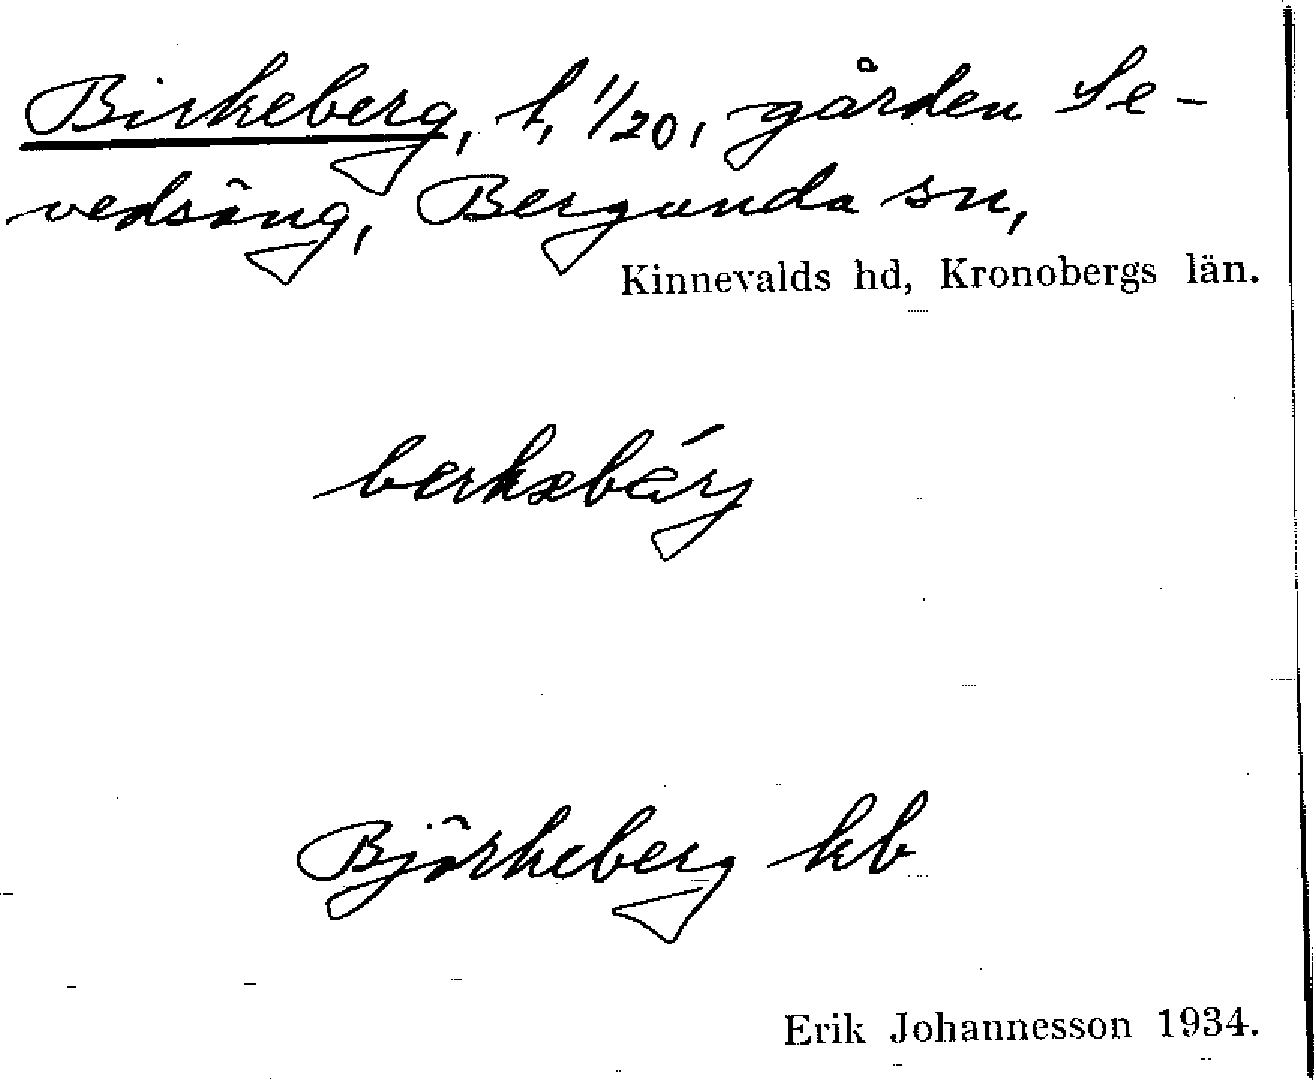 Birkeberg, l, 1/20, gården Se-
vedsäng, Bergunda sn,
Kinnevalds hd, Kronobergs län.
Björkeberg kb
Erik Johannesson 1934.